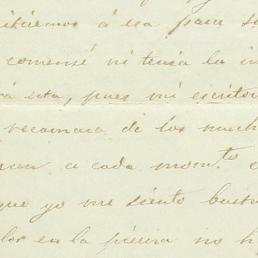 á esa para
comensé ni tenia la in
esta, pues mi escritor
recamara de los much
a cada momto
que yo me siento bast
lor en la pierna no h